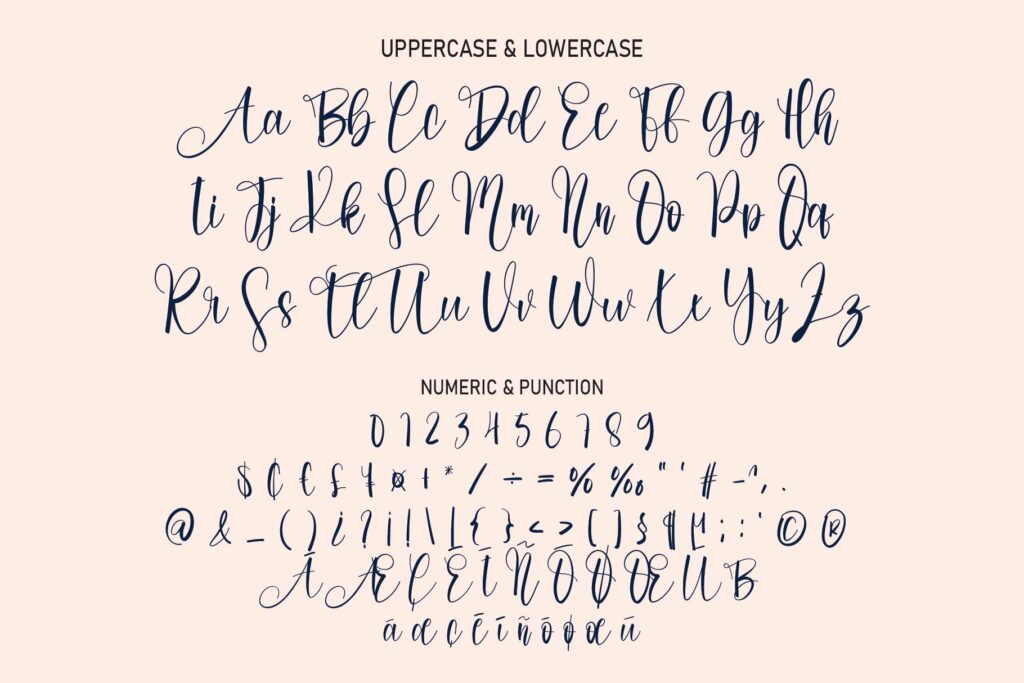 UPPERCASE & LOWERCASE
Aa Bb Cc Dd Ee Ff Gg Hh
Ii Jj Kk Ll Mm Nn Oo Pp Qq
Rr Ss Tt Uu Vv Ww Xx Yy Zz
NUMERIC & PUNCTION
0 1 2 3 4 5 6 7 8 9
$ ₵ € £ ¥ ¤ + * / ÷ = % ‰ " ' # - ^ , .
@ & _ ( ) ¿ ? ¡ ! \ | { } < > [ ] § ¶ µ ; : ' © ®
Á Æ Ç É Í Ñ Ó Ø Œ U B
á œ ç é í ñ ó ø œ ú